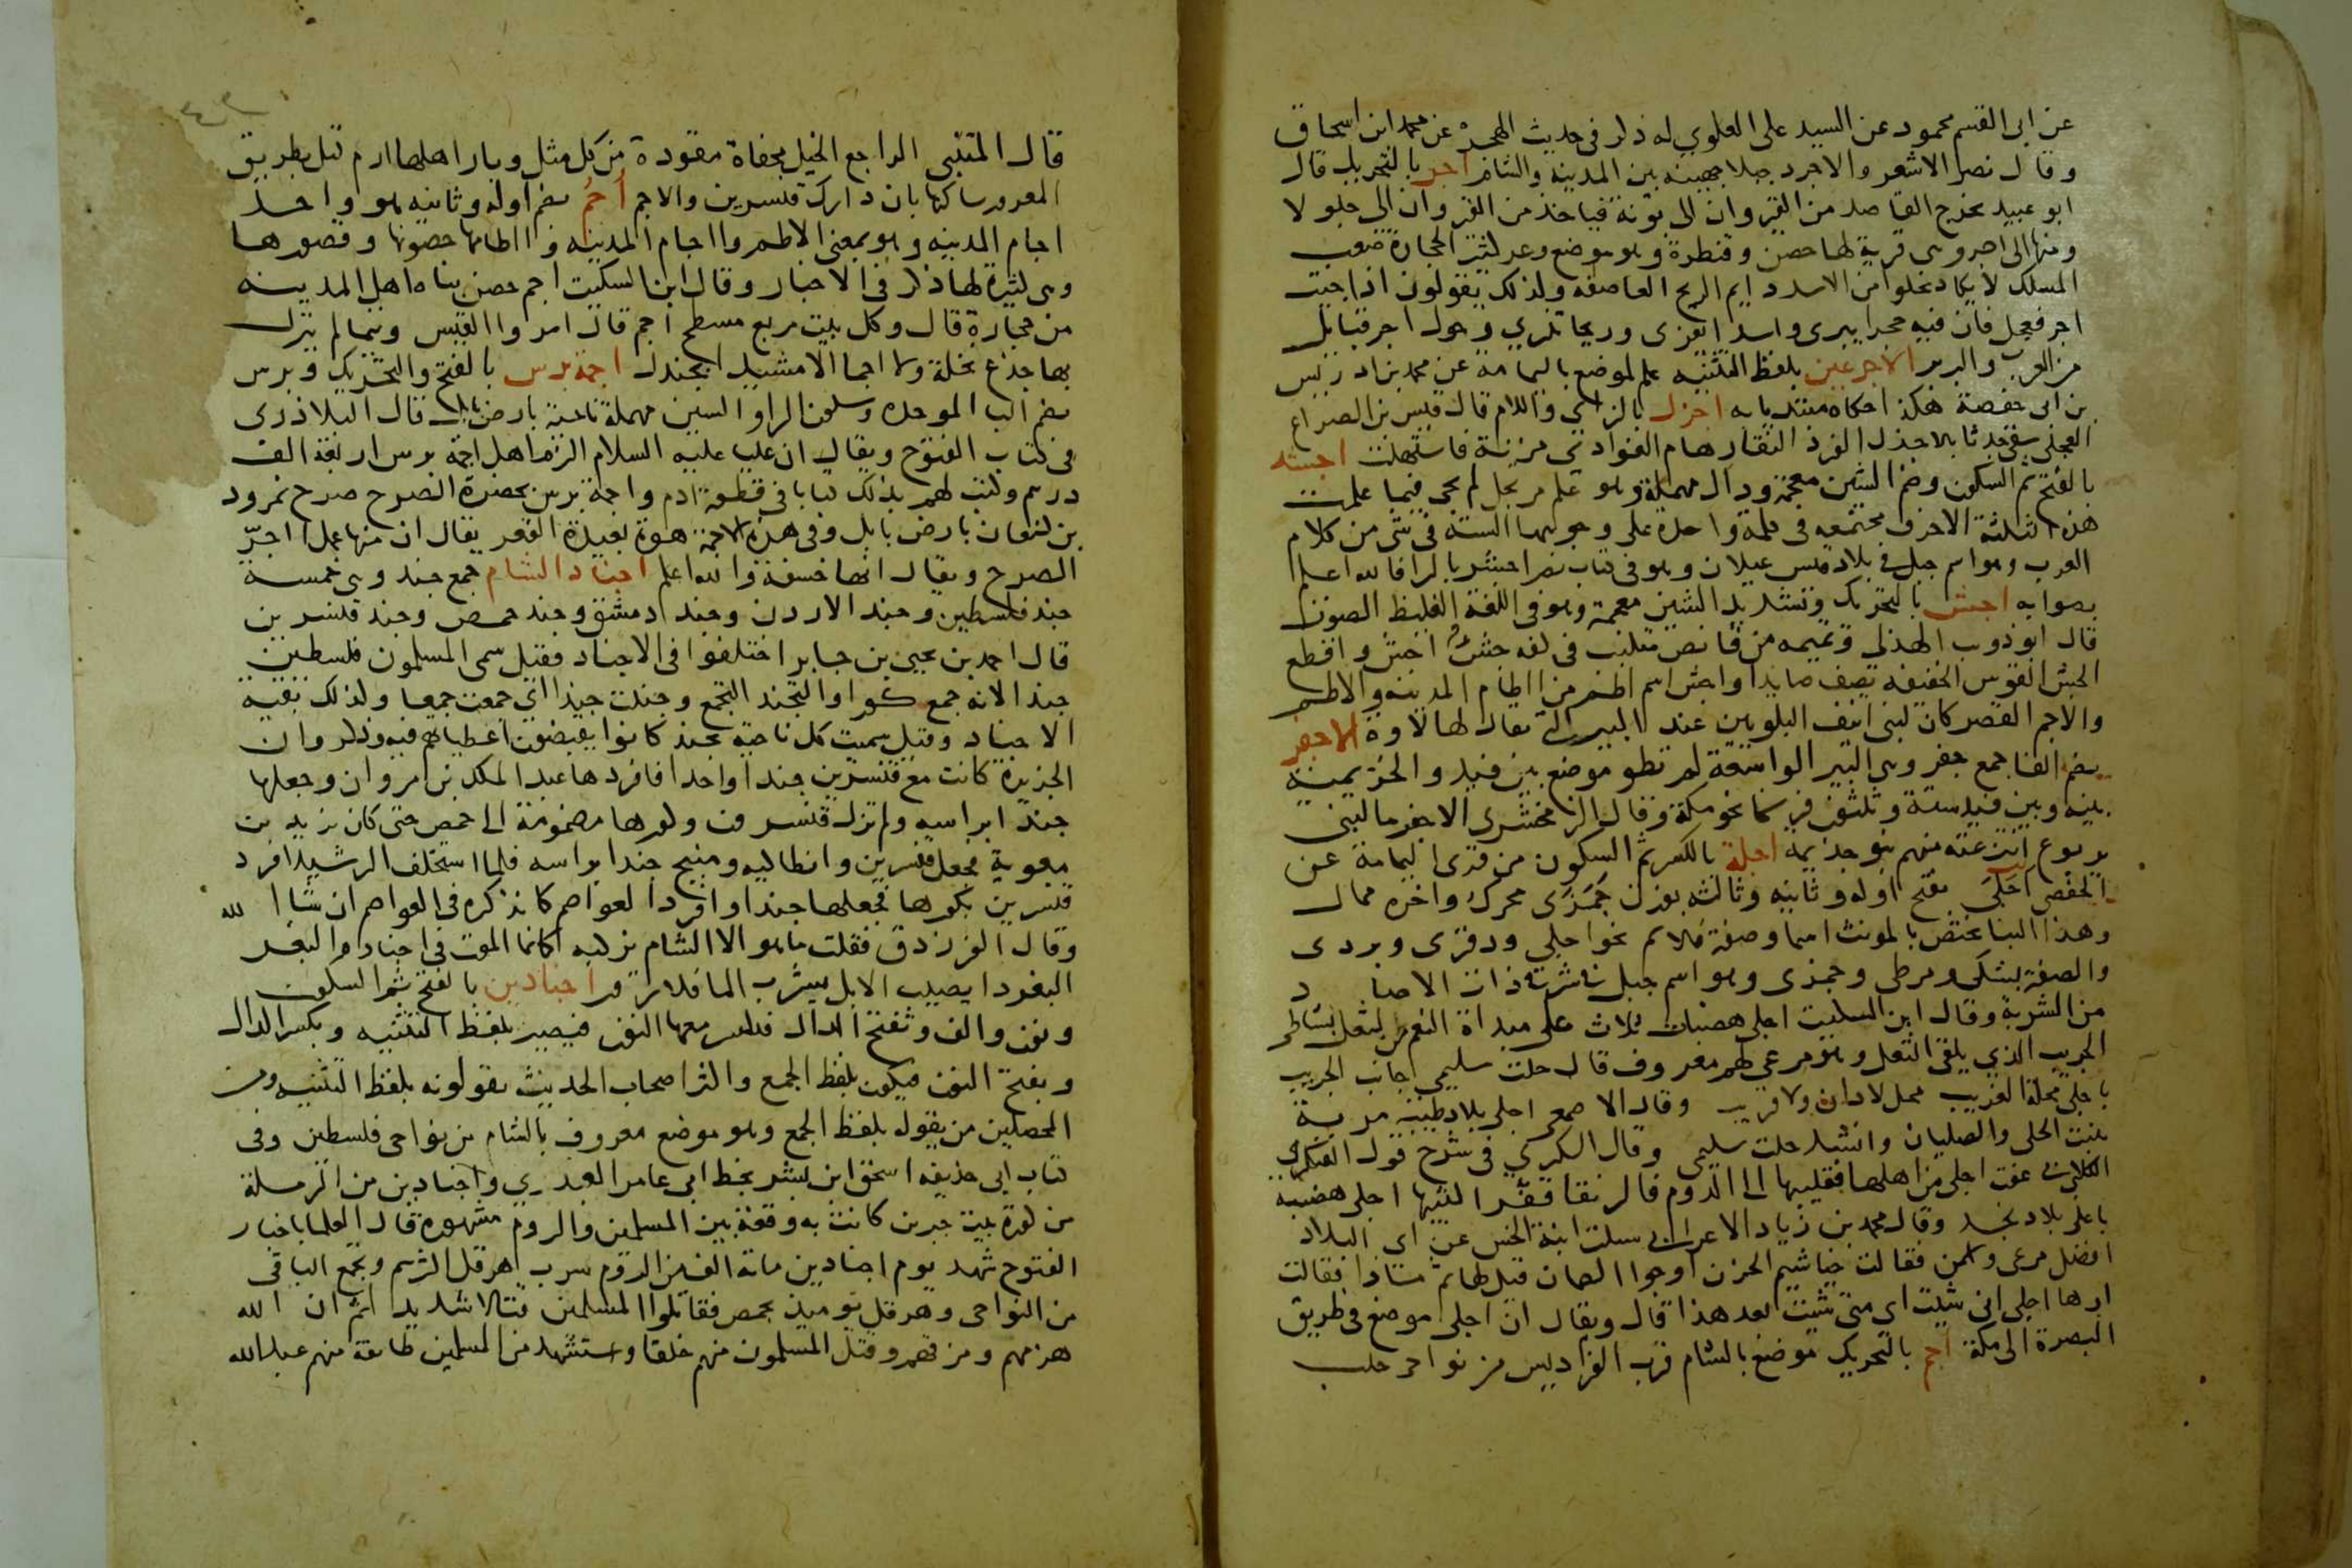 عن ابى القسم محمود عن السيد على العلوي له ذكر فى حديث الهجرة عن محمد ابن اسحاق
وقال نصر الاشعر والاجرد جبلا جهينه بين المدينه والشام اجر بالتحريك قال
ابو عبيد يخرج القاصد من القيروان الى بونة فياخذ من القيروان الى جلولا
ومنها الى اجر وهى قرية لها حصن وقنطرة وهو موضع وعر كثير الحجارة صعب
المسلك لا يكاد يخلوا من الاسد دايم الريح العاصفه ولذلك يقولون اذا جيت
اجر فعجل فان فيه حجرا يبرى واسدا يفزى وريحا تذري وحول اجر قبايل
من العرب والبربر الاجرعين بلفظ التثنيه علم لموضع باليمامة عن محمد بن ادريس
بن ابى حفصة هكذا حكاه مبتديا به اجزل بالزاى واللام قال قيس بن الصراع
العجلى سقى جدثا بالاجزل الفرد النقا رهام الغوادي مزنة فاستهلت اجشد
بالفتح ثم السكون وضم الشين معجمة ودال مهملة وهو علم مرتجل لم يجى فيما علمت
هذه الثلثة الاحرف مجتمعه فى كلمة واحدة على وجوهها السته فى شى من كلام
العرب وهو اسم جبل فى بلاد قيس عيلان وهو فى كتاب نصر اجشر بالرا فالله اعلم
بصوابه اجش بالتحريك وتشديد الشين معجمة وهو فى اللغة الغليظ الصوت
قال ابو ذويب الهذلى ونميمه من قانص متلبب فى كفه جشء اجش واقطع
الجش القوس الخفيفه يصف صايدا واجش اسم اطم من اطام المدينه والاطم
والاجم القصر كان لبنى انيف البلويين عند البير التى يقال لها لاوة الاجفر
بضم الفا جمع جفر وهى البير الواسعة لم تطو موضع بين فيد والخزيمية
بينه وبين فيد ستة وثلثون فرسخا نحو مكة وقال الزمخشرى الاجفر ما لبنى
يربوع انتزعته منهم بنو جذيمه اجلة بالكسر ثم السكون من قرى اليمامة عن
الحفصى اجلى بفتح اوله وثانيه وثالثه بوزن جمزى محرك واخره ممال
وهذا البنا يختص بالمونث اسما وصفة فالاسم نحو اجلى ودقرى وبردى
والصفة بشكى ومرطى وجمزى وهو اسم جبل فى شرقى ذات الاصاد
من الشربة وقال ابن السكيت اجلى هضبات ثلاث على مبداة النعم من الثعل بشاطى
الجريب الذي يلقى الثعل وهو مرعى لهم معروف قال حلت سليمى جانب الجريب
باجلى محلة الغريب محل لادان ولا قريب وقال الاصمعى اجلى بلاد طيبه مريه
ينبت الحلى والصليان وانشد حلت سليمى وقال السكري فى شرح قول القتال
الكلابى عفت اجلى من اهلها فقليبها الى الدوم فالرنقا قفرا كثيبها اجلى هضبه
باعلى بلاد نجد وقال محمد بن زياد الاعرابى سئلت ابنة الخس عن اى البلاد
افضل مرعى واسمن فقالت خياشيم الحزن او جوا الصمان قيل لها ثم ماذا فقالت
ارها اجلى انى شيت اى متى شيت بعد هذا قال ويقال ان اجلى موضع فى طريق
البصرة الى مكة اجم بالتحريك موضع بالشام قرب الفراديس من نواحى حلب
قال المتنبى الراجع الخيل محفاة مقودة من كل مثل وبار اهلها ارم كتل بطريق
المغرور ساكنها بان دارك قنسرين والاجم أُجُم بضم اوله وثانيه هو واحد
اجام المدينه وهو بمعنى الاطم واجام المدينه واطامها حصونها وقصورها
وهى كثيرة لها ذكر فى الاخبار وقال ابن السكيت اجم حصن بناه اهل المدينه
من حجارة قال وكل بيت مربع مسطح اجم قال امروا القيس وتيما لم يترك
بها جذع نخلة ولا اجما الا مشيدا بجندل اجمة برس بالفتح والتحريك وبرس
بضم البا الموحده وسكون الراو السين مهملة ناحية بارض بابل قال البلاذرى
فى كتاب الفتوح ويقال ان على عليه السلام الزم اهل اجمة برس اربعة الف
درهم وكتب لهم بذلك كتابا فى قطعة ادم واجمة برس بحضرة الصرح صرح نمرود
بن كنعان بارض بابل وفى هذه الاجمة هوة بعيدة القعر يقال ان منها عمل اجر
الصرح ويقال انها خسفة والله اعلم اجناد الشام جمع جند وهى خمسة
جند فلسطين وجند الاردن وجند دمشق وجند حمص وجند قنسرين
قال احمد بن يحيى بن جابر اختلفوا فى الاجناد فقيل سمى المسلمون فلسطين
جندا لانه جمع كورا والتجند التجمع وجندت جندا اى جمعت جمعا ولذلك بقية
الاجناد وقيل سميت كل ناحية بجند كانوا يقبضون اعطياتهم فيه وذكروا ان
الجزيرة كانت مع قنسرين جندا واحدا فافردها عبد الملك بن مروان وجعلها
جندا براسه ولم تزل قنسرين وكورها مضمومة الى حمص حتى كان يزيد بن
معوية فجعل قنسرين وانطاكيه ومنبج جندا براسه فلما استخلف الرشيد افرد
قنسرين بكورها فجعلها جندا وافرد العواصم كما نذكره فى العواصم ان شا الله
وقال الفرزدق فقلت ما هو الا الشام نركبه كانما الموت فى اجناده البغر
البغر دا يصيب الابل يشرب الما فلا تروى اجنادين بالفتح ثم السكون
ونون والف وتفتح الدال فتكسر معها النون فيصير بلفظ التثنيه وبكسر الدال
وبفتح النون فيكون بلفظ الجمع واكثر اصحاب الحديث يقولونه بلفظ التثنيه ومن
المحصلين من يقوله بلفظ الجمع وهو موضع معروف بالشام من نواحى فلسطين وفى
كتاب ابى حذيفه اسحق ابن بشر بخط ابى عامر العبدري واجنادين من الرملة
من كورة بيت جبرين كانت به وقعة بين المسلمين والروم مشهورة قال العلما باخبار
الفتوح شهد يوم اجنادين مائة الف من الروم سرب هرقل اكثرهم وتجمع الباقى
من النواحى وهرقل يوميذ بحمص فقاتلوا المسلمين قتالا شديدا ثم ان الله
هزمهم ومزقهم وقتل المسلمون منهم خلقا واستشهد من المسلمين طائفة منهم عبد الله